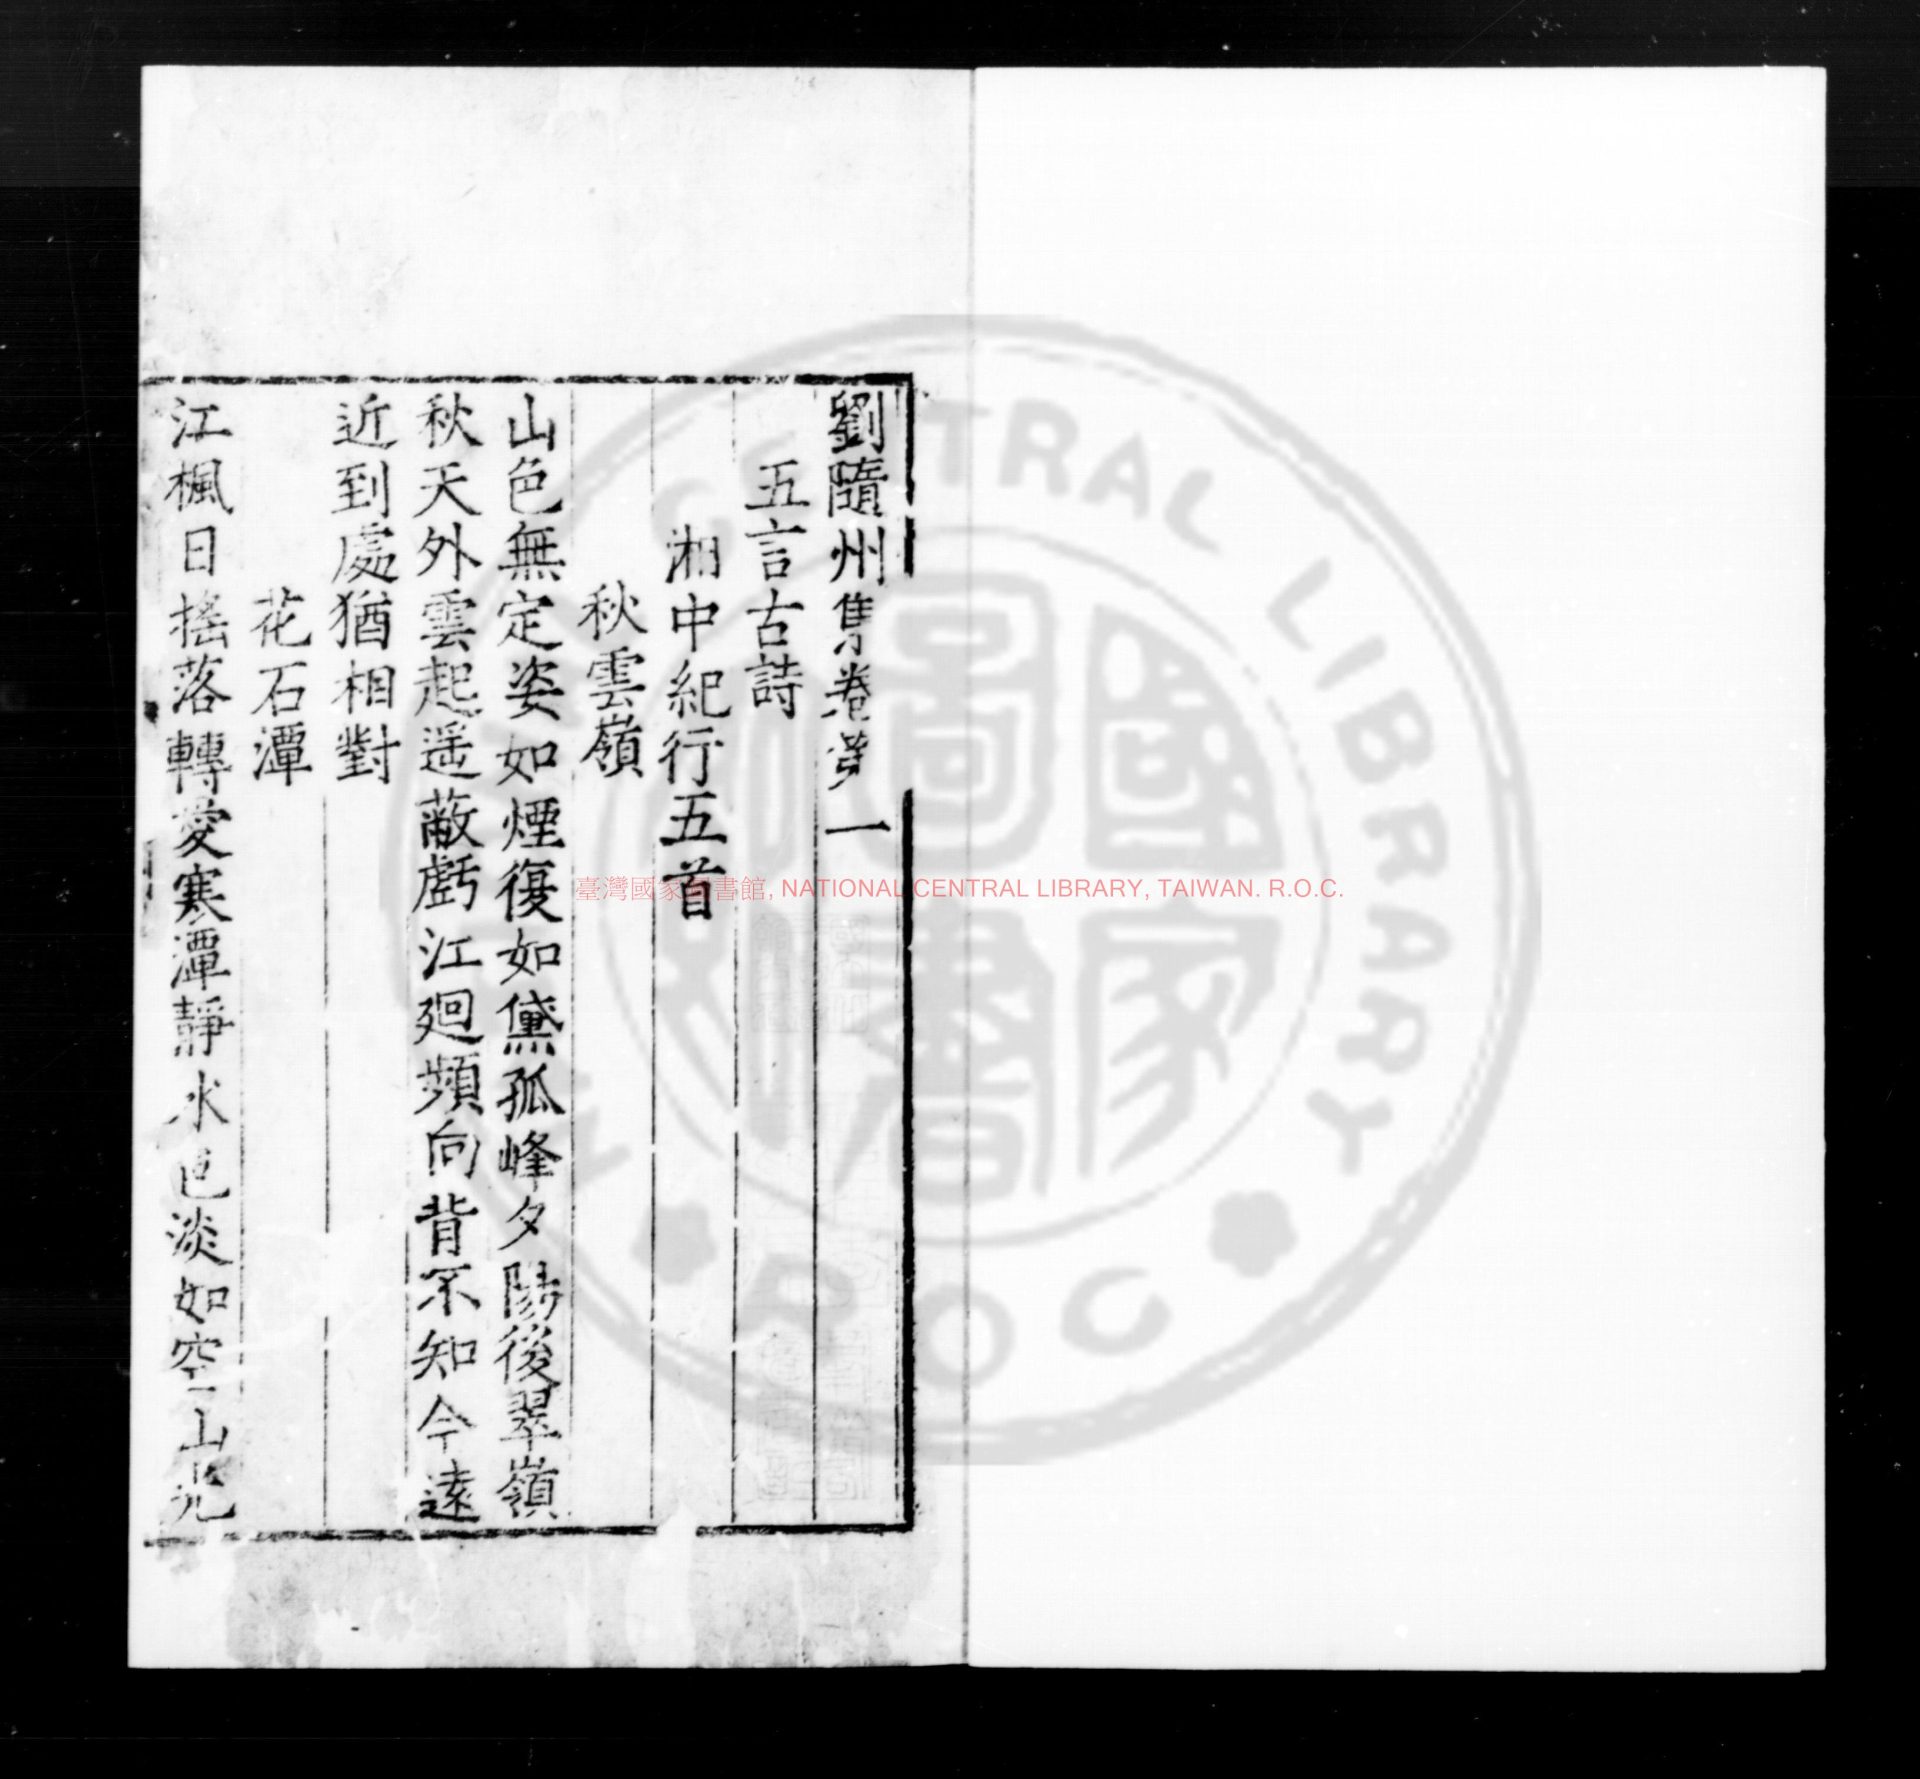 劉隨州集卷第一
五言古詩
湘中紀行五首
秋雲嶺
山色無定姿如煙復如黛孤峰夕陽後翠嶺
秋天外雲起遥蔽虧江廻頻向背不知今遠
近到處猶相對
花石潭
江楓日搖落轉愛寒潭靜水色淡如空山光
臺灣國家圖書館, NATIONAL CENTRAL LIBRARY, TAIWAN. R.O.C.
CENTRAL LIBRARY
R O C
國家圖書